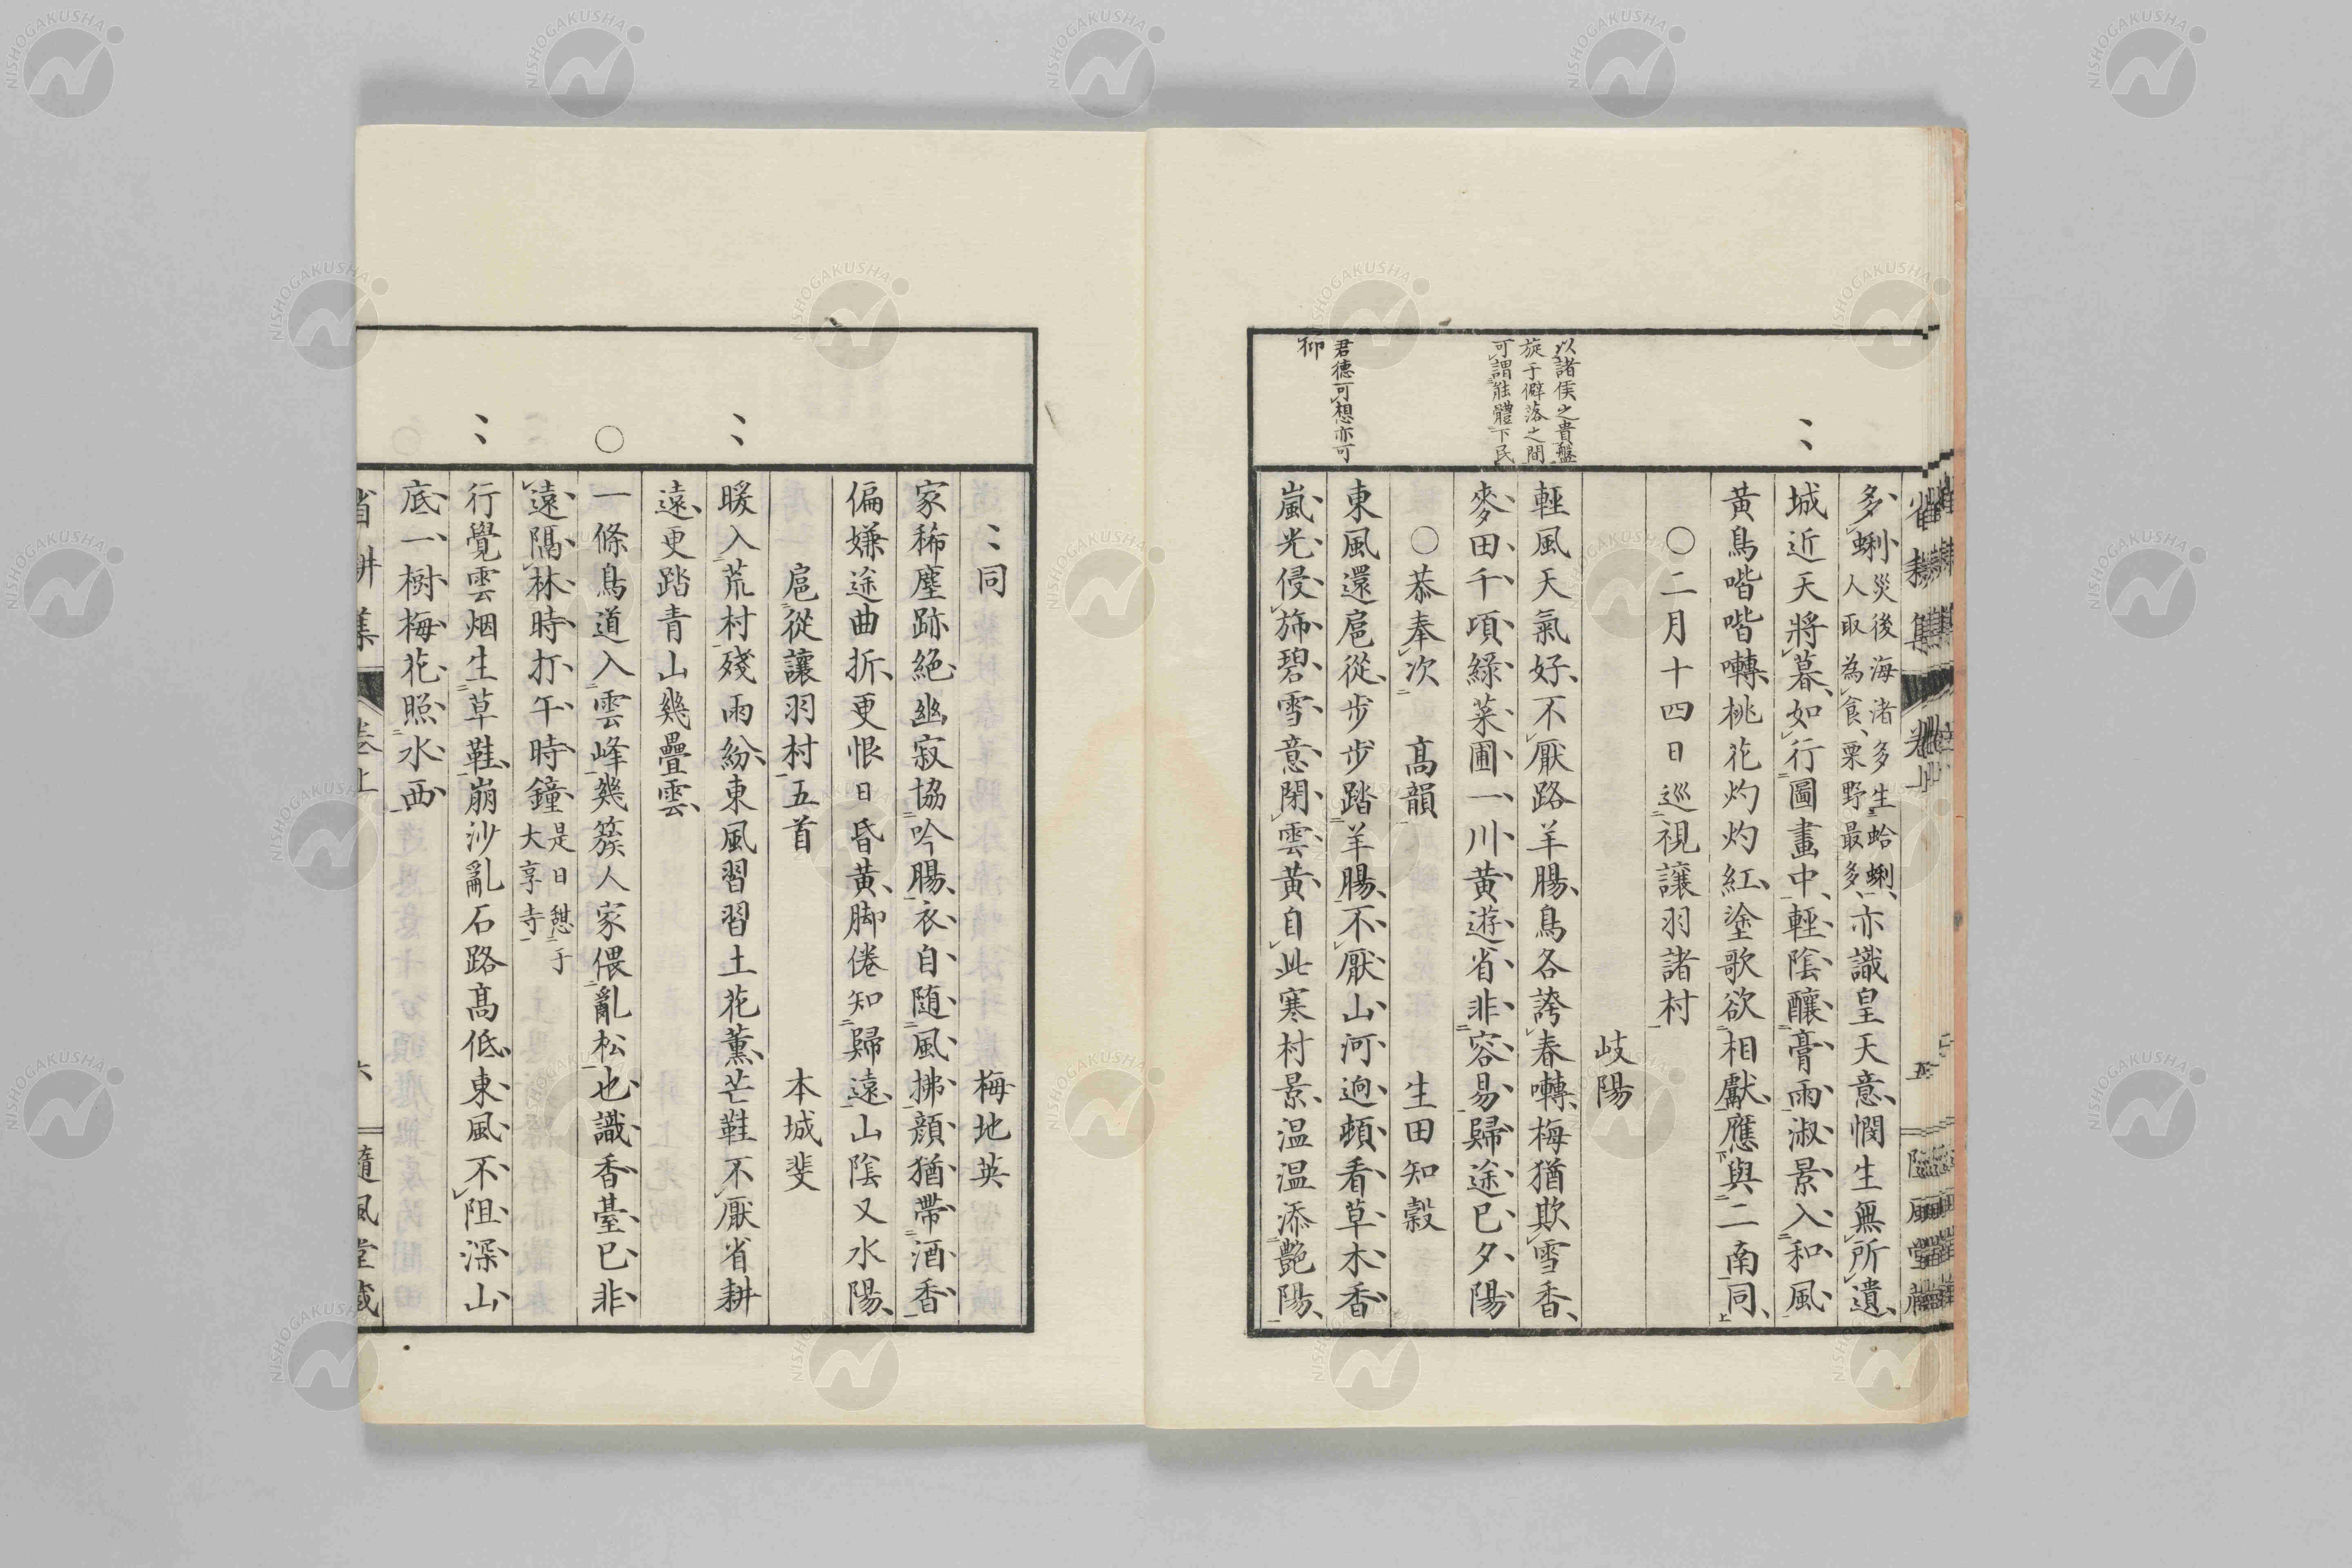 多蜊災後海渚多生蛤蜊人取為食栗野最多亦識皇天意憫生無所遺
城近天將暮如行圖畫中輕陰釀膏雨淑景入和風
黃鳥喈喈囀桃花灼灼紅塗歌欲相獻應與二南同
○二月十四日巡視讓羽諸村
岐陽
以諸侯之貴盤
旋于僻落之間
可謂能體下民
輕風天氣好不厭路羊腸鳥各誇春囀梅猶欺雪香
麥田千頃綠菜圃一川黃遊省非容易歸途已夕陽
○恭奉次 高韻 生田知穀
君德可想亦可
仰
東風還扈從步步踏羊腸不厭山河迥頓看草木香
嵐光侵旆碧雪意閉雲黃自此寒村景温温添艷陽
同 梅地英
家稀塵跡絕幽寂協吟腸衣自随風拂顏猶帶酒香
偏嫌途曲折更恨日昏黃脚倦知歸遠山陰又水陽
扈從讓羽村五首 本城斐
暖入荒村殘雨紛東風習習土花薰芒鞋不厭省耕
遠更踏青山幾疊雲
○
一條鳥道入雲峰幾簇人家偎亂松也識香臺已非
遠隔林時打午時鐘是日憇于大享寺
行覺雲烟生草鞋崩沙亂石路髙低東風不阻深山
底一樹梅花照水西
省耕集 卷上 六 隨風堂藏
NISHOGAKUSHA